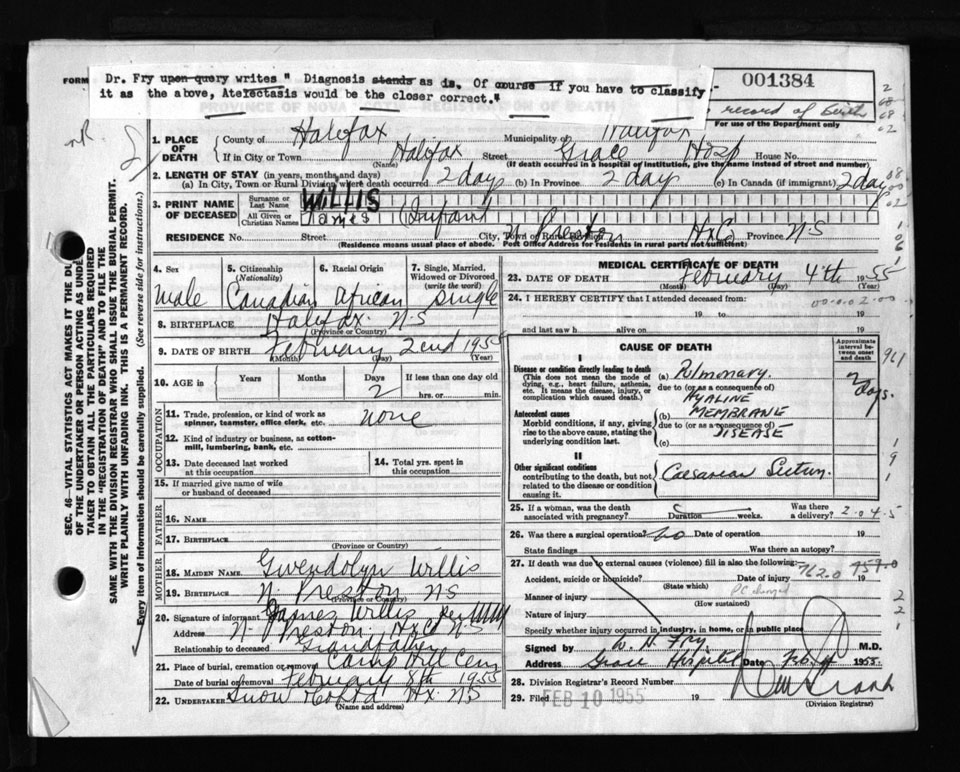 FORM
Dr. Fry upon query writes " Diagnosis stands as is. Of course if you have to classify
it as the above, Atelectasis would be the closer correct."
001384
record of birth
For use of the Department only
1. PLACE OF DEATH
County of Halifax Municipality of Halifax
If in City or Town Halifax Street Grace Hosp House No.
(Name) (If death occurred in a hospital or institution, give the name instead of street and number)
2. LENGTH OF STAY (in years, months and days)
(a) In City, Town or Rural Division where death occurred 2 days (b) In Province 2 day (c) In Canada (if immigrant) 2 day
3. PRINT NAME OF DECEASED
Surname or Last Name WILLIS
All Given or Christian Names James Infant
RESIDENCE No. Street City, Town N Preston Hx Co Province N-S
(Residence means usual place of abode. Post Office Address for residents in rural parts not sufficient)
4. Sex 5. Citizenship (Nationality) 6. Racial Origin 7. Single, Married, Widowed or Divorced (write the word)
male Canadian African single
8. BIRTHPLACE Halifax N-S
(Province or Country)
9. DATE OF BIRTH February 2nd 1955
(Month) (Day) (Year)
10. AGE in Years Months Days If less than one day old
2 hrs. or min.
OCCUPATION
11. Trade, profession, or kind of work as spinner, teamster, office clerk, etc. none
12. Kind of industry or business, as cotton-mill, lumbering, bank, etc.
13. Date deceased last worked at this occupation
14. Total yrs. spent in this occupation
15. If married give name of wife or husband of deceased
FATHER
16. NAME
17. BIRTHPLACE
(Province or Country)
MOTHER
18. MAIDEN NAME Gwendolyn Willis
19. BIRTHPLACE N. Preston NS
(Province or Country)
20. Signature of informant James Willis per
Address N. Preston Hx Co N-S
Relationship to deceased Grandfather
21. Place of burial, cremation or removal Camp Hill Cem
Date of burial or removal February 8th 1955
22. UNDERTAKER Snow Hx. NS
(Name and address)
MEDICAL CERTIFICATE OF DEATH
23. DATE OF DEATH February 4th 1955
(Month) (Day)
24. I HEREBY CERTIFY that I attended deceased from:
00-0.02-00
19 to 19
and last saw h alive on 19
CAUSE OF DEATH
Approximate interval between onset and death
961
I
Disease or condition directly leading to death
(This does not mean the mode of dying, e.g., heart failure, asthenia, etc. It means the disease, injury, or complication which caused death.)
(a) Pulmonary 2 days.
due to (or as a consequence of)
HYALINE
Antecedent causes
Morbid conditions, if any, giving rise to the above cause, stating the underlying condition last.
(b) MEMBRANE
due to (or as a consequence of)
DISEASE
(c)
II
Other significant conditions
contributing to the death, but not related to the disease or condition causing it.
Caesarean Section
25. If a woman, was the death associated with pregnancy? Duration weeks. Was there a delivery? 2-04-5
26. Was there a surgical operation? no Date of operation 19
State findings Was there an autopsy?
27. If death was due to external causes (violence) fill in also the following:
762.0
Accident, suicide or homicide? Date of injury 19
(State which)
Manner of injury
(How sustained)
Nature of injury
Specify whether injury occurred in industry, in home, or in public place
Signed by W. H. Fry M.D.
Address Grace Hospital Date 1955
28. Division Registrar's Record Number
29. Filed FEB 10 1955 19
(Division Registrar)
SEC. 46—VITAL STATISTICS ACT MAKES IT THE DU
OF THE UNDERTAKER OR PERSON ACTING AS UNDE
TAKER TO OBTAIN ALL THE PARTICULARS REQUIRED
IN THE "REGISTRATION OF DEATH" AND TO FILE THE
SAME WITH THE DIVISION REGISTRAR WHO SHALL ISSUE THE BURIAL PERMIT.
WRITE PLAINLY WITH UNFADING INK. THIS IS A PERMANENT RECORD.
Every item of information should be carefully supplied. (See reverse side for instructions.)